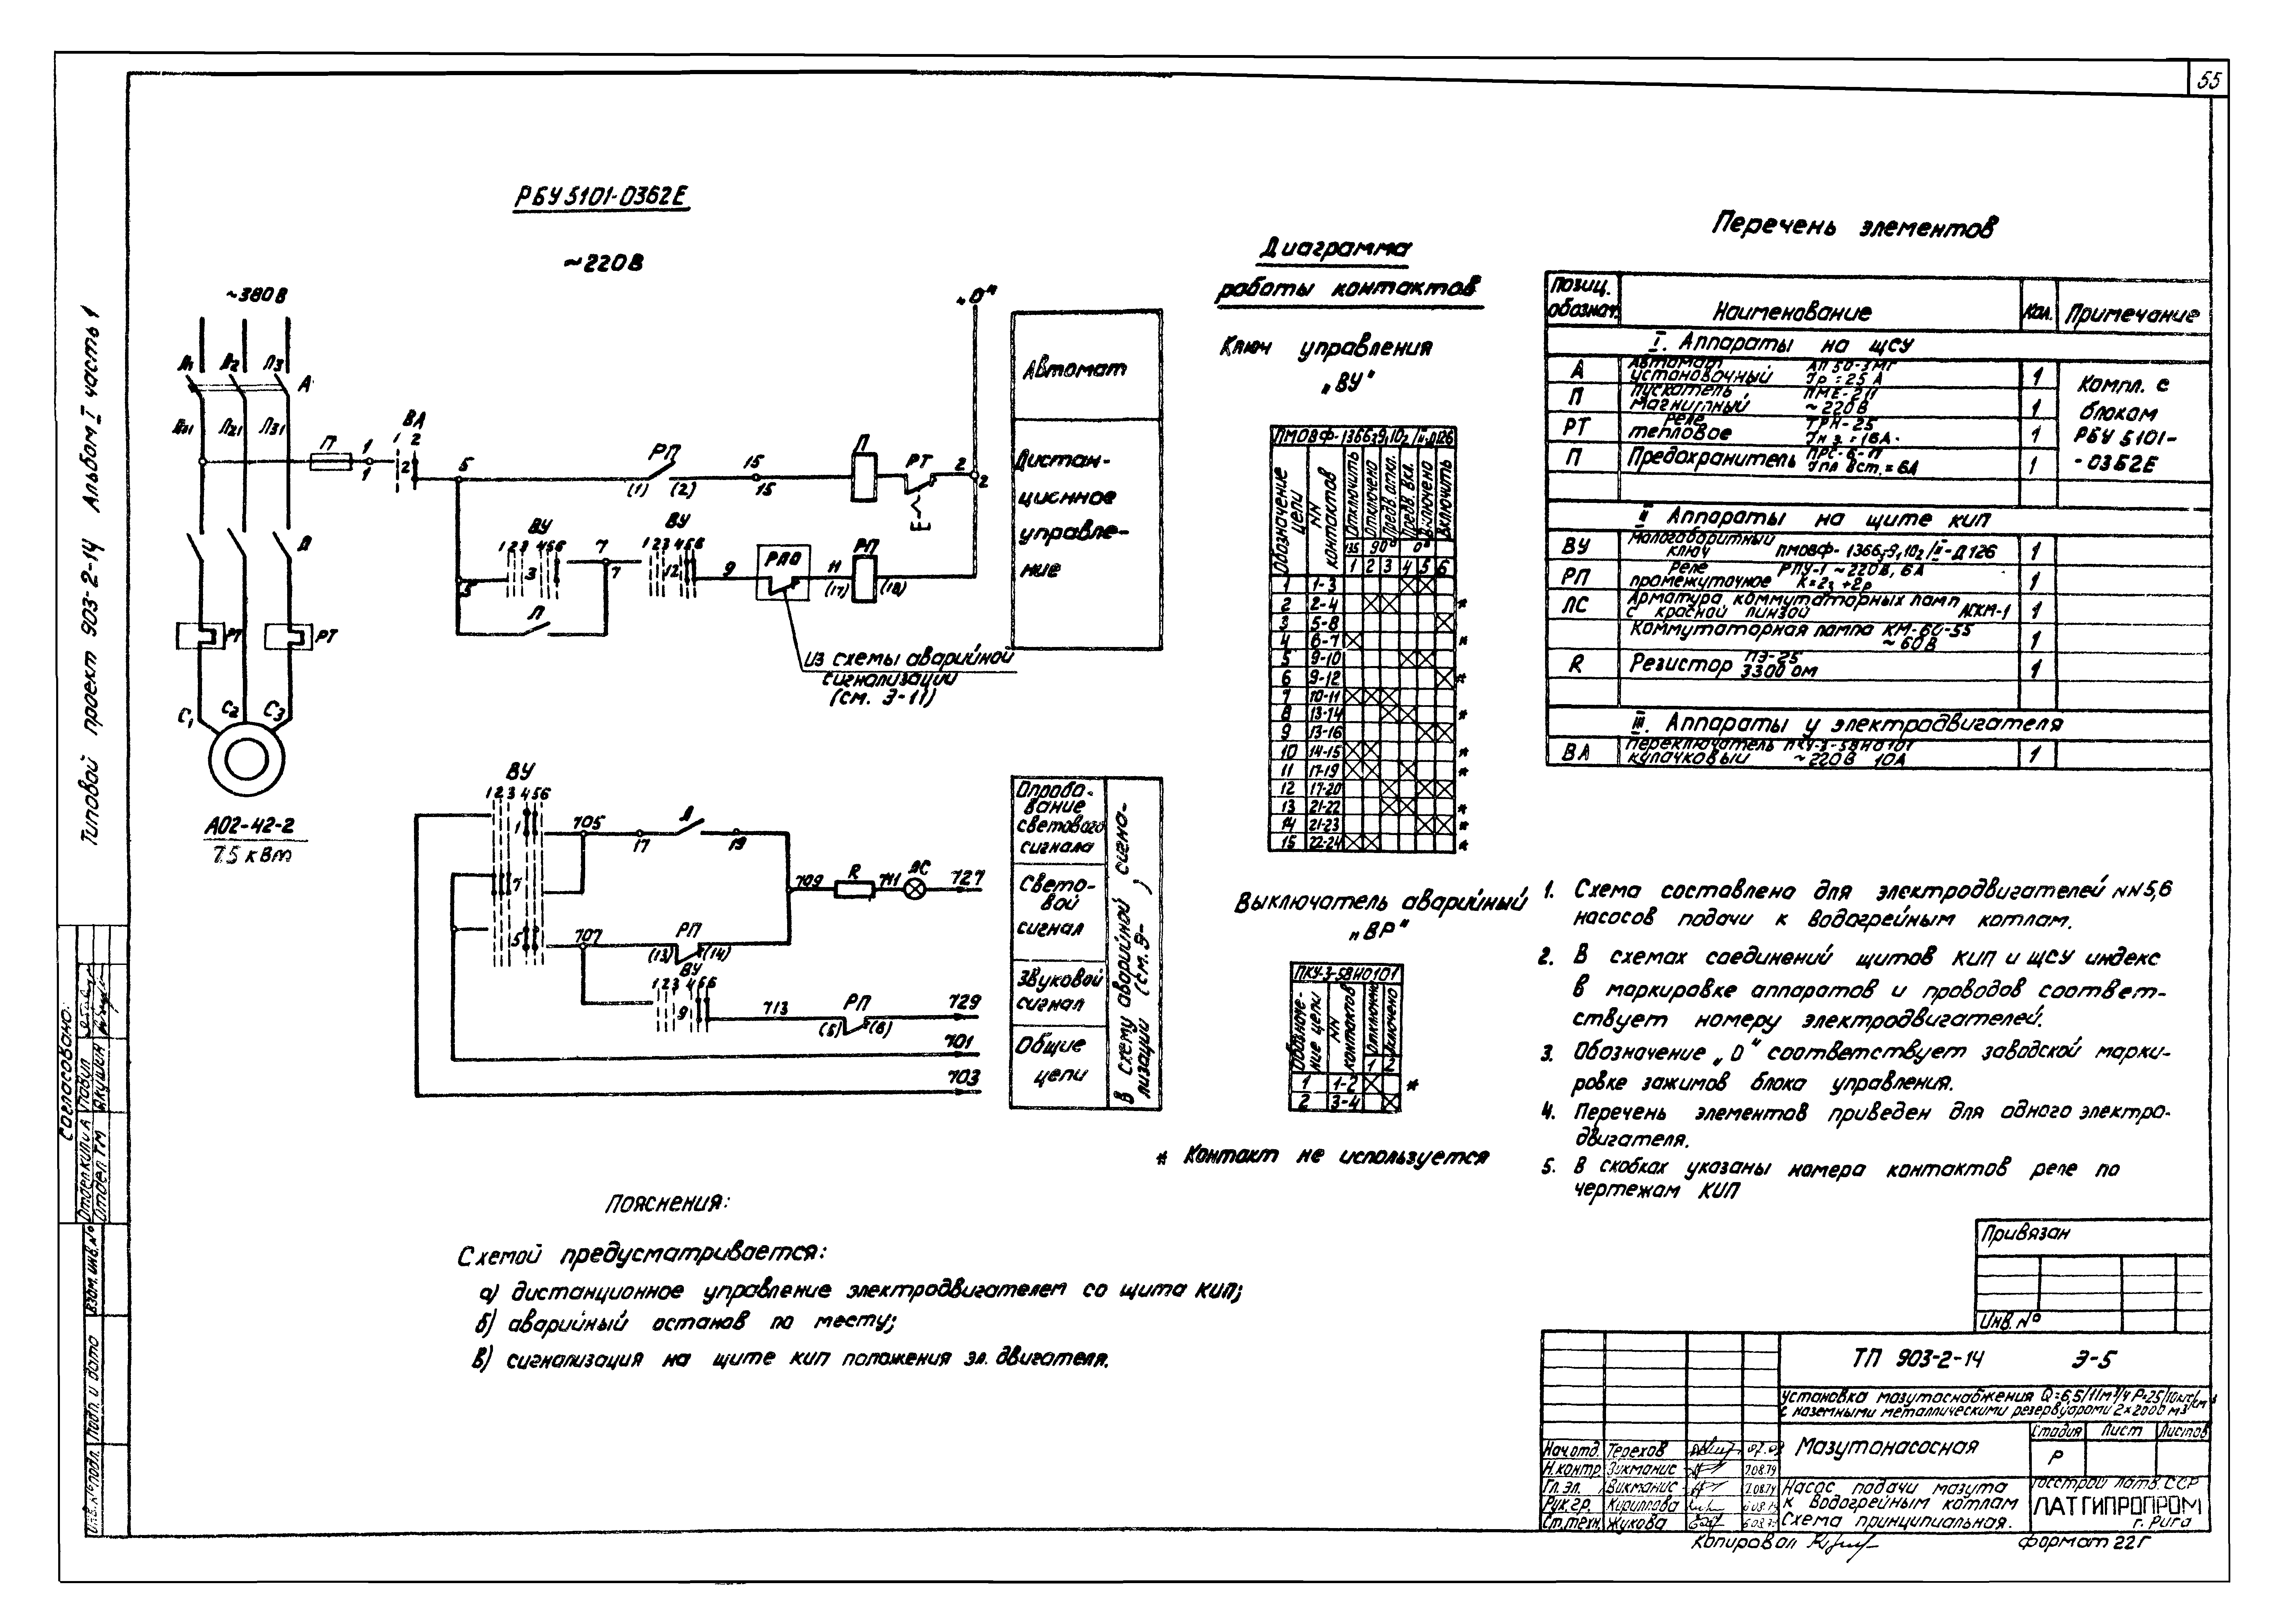 55
Типовой проект 903-2-14 Альбом I часть 1
РБУ 5101-0362Е
~220В
~380В
„0"
Л1 Л2 Л3
А
Л21 Л31
ВА
1 2
П
1
1
2
5
РП
(1) (2)
15
15
П
РТ
2
2
П
ВУ
1 2 3 4 5 6
3
7
7
ВУ
1 2 3 4 5 6
12
9
РПО
11
(17)
РП
(18)
5
П
РТ
РТ
Из схемы аварийной
сигнализации
(см. Э-11)
С1 С2 С3
А02-42-2
7.5 кВт
Автомат
Дистан-
ционное
управле-
ние
ВУ
1 2 3 4 5 6
1
705
17
19
7
709
R
711
ЛС
727
5
707
РП
(13) (14)
ВУ
1 2 3 4 5 6
9
713
РП
(5) (6)
729
701
703
Опробо-
вание
светового
сигнала
Свето-
вой
сигнал
Звуковой
сигнал
Общие
цепи
В схему аварийной сигна-
лизации (см. Э- )
Диаграмма
работы контактов
Ключ управления
„ВУ"
ПМОВФ-13663,9,102/II-Д126
Обозначение цепи
NN контактов
Отключить
Отключено
Предв. откл.
Предв. вкл.
Включено
Включить
135 90° 0°
1 2 3 4 5 6
1 1-3
2 2-4 *
3 5-8
4 6-7 *
5 9-10
6 9-12 *
7 10-11
8 13-14 *
9 13-16
10 14-15 *
11 17-19 *
12 17-20
13 21-22 *
14 21-23 *
15 22-24 *
Выключатель аварийный
„ВР"
ПКУ-3-58Н0101
Обозначе-
ние цепи
NN
контактов
Отключено
Включено
1 2
1 1-2 *
2 3-4
* Контакт не используется
Перечень элементов
Позиц. обознач. Наименование Кол. Примечание
I. Аппараты на ЩСУ
А Автомат установочный АП50-3МТ Iр=25А 1
П Пускатель магнитный ПМЕ-211 ~220В 1
РТ Реле тепловое ТРН-25 Iн э.=16А. 1
П Предохранитель ПРС-6-П Iпл вст.=6А 1
Компл. с
блокам
РБУ 5101-
-0362Е
II Аппараты на щите КИП
ВУ Малогабаритный ключ ПМОВФ-13663,9,102/II-Д126 1
РП Реле промежуточное РПУ-1 ~220В, 6А К=2з+2р 1
ЛС Арматура коммутаторных ламп с красной линзой АСКМ-1 1
Коммутаторная лампа КМ-60-55 ~60В 1
R Резистор ПЭ-25 3300 ом 1
III. Аппараты у электродвигателя
ВА Переключатель кулачковый ПКУ-3-58Н0101 ~220В 10А 1
1. Схема составлена для электродвигателей NN5,6
насосов подачи к водогрейным котлам.
2. В схемах соединений щитов КИП и ЩСУ индекс
в маркировке аппаратов и проводов соответ-
ствует номеру электродвигателей.
3. Обозначение „0" соответствует заводской марки-
ровке зажимов блока управления.
4. Перечень элементов приведен для одного электро-
двигателя.
5. В скобках указаны номера контактов реле по
чертежам КИП
Пояснения:
Схемой предусматривается:
а) дистанционное управление электродвигателем со щита КИП;
б) аварийный останов по месту;
в) сигнализация на щите КИП положения эл. двигателя.
Согласовано:
Отдел КИП и А Повул
Отдел ТМ Якушин
Взам. инв. №
Подп. и дата
Инв. № подл.
Привязан
Инв. №
ТП 903-2-14 Э-5
Установка мазутоснабжения Q=6,5/11м³/ч Р=25/10кгс/см²
с наземными металлическими резервуарами 2×2000 м3
Мазутонасосная
Стадия Лист Листов
Р
Нач.отд. Терехов
Н.контр Зикманис 7.08.79
Гл. эл. Викманис 7.08.79
Рук.гр. Кириллова
Ст.техн. Жукова
Насос подачи мазута
к водогрейным котлам
Схема принципиальная.
Госстрой Латв. ССР
ЛАТГИПРОПРОМ
г. Рига
Копировал
Формат 22Г